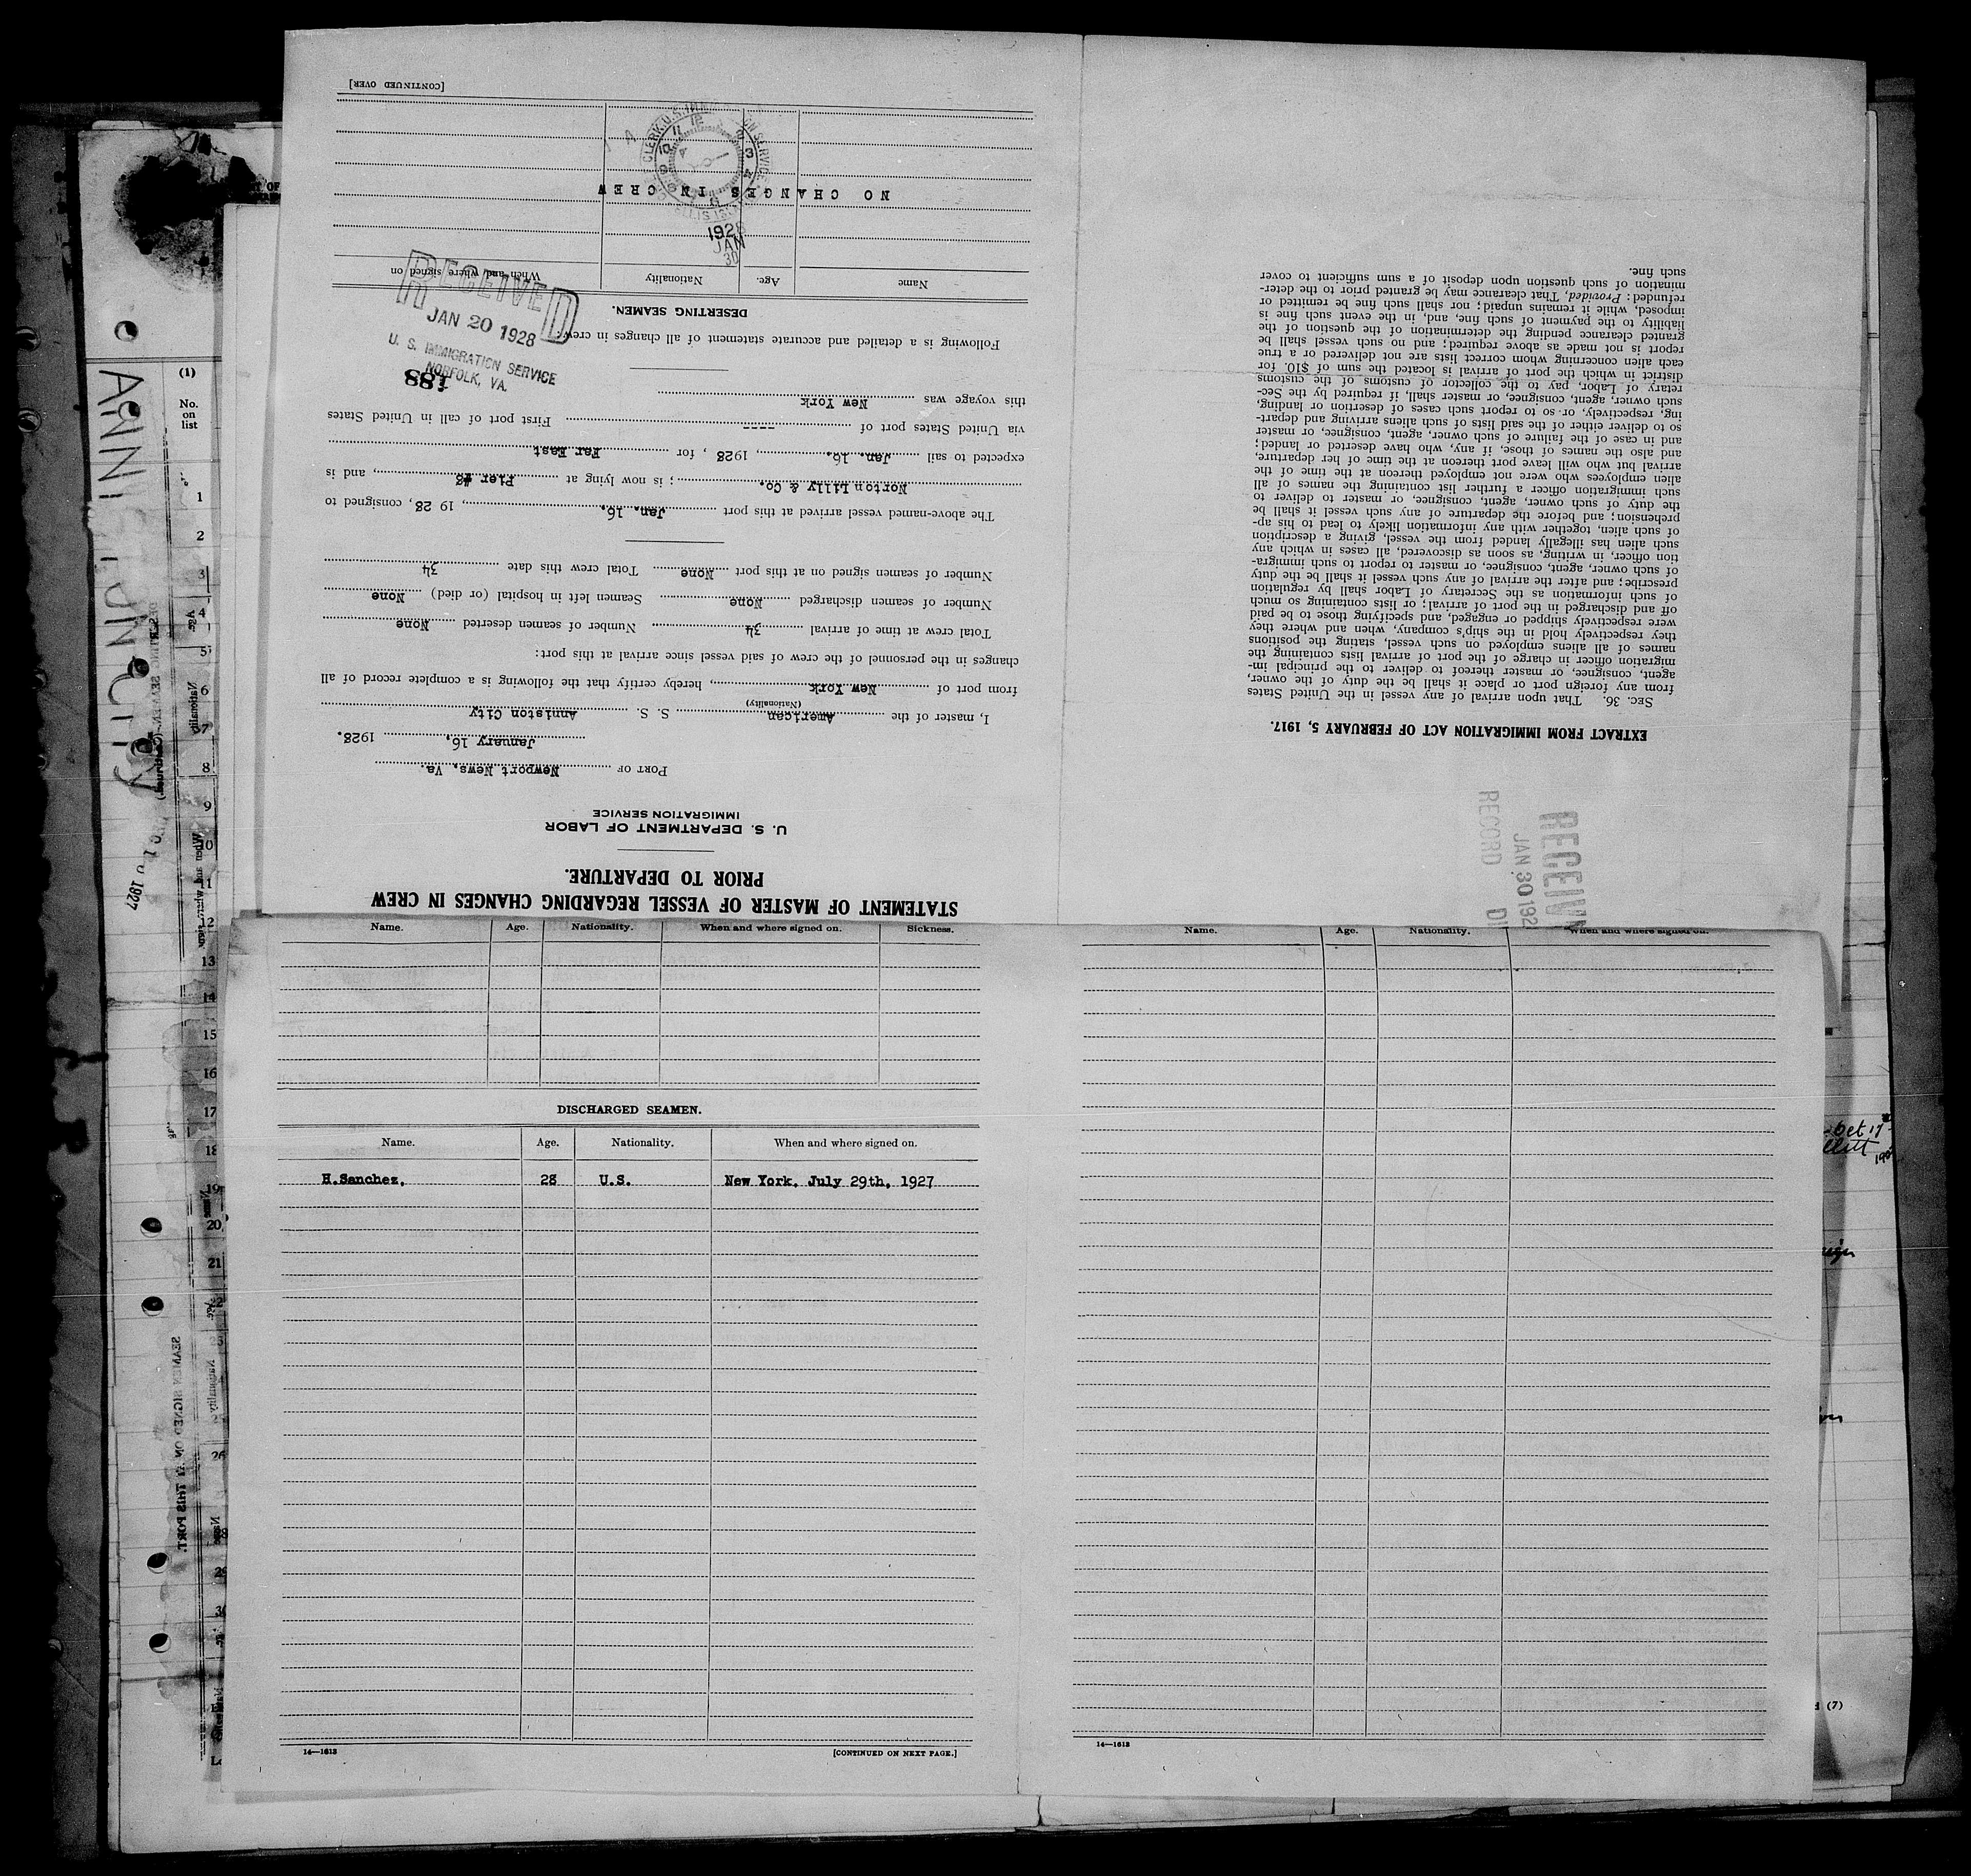 STATEMENT OF MASTER OF VESSEL REGARDING CHANGES IN CREW
PRIOR TO DEPARTURE.
U. S. DEPARTMENT OF LABOR
IMMIGRATION SERVICE
PORT OF Newport News, Va.
January 16, 1928.
I, master of the American S. S. Anniston City
(Nationality)
from port of New York, hereby certify that the following is a complete record of all
changes in the personnel of the crew of said vessel since arrival at this port:
Total crew at time of arrival 34 Number of seamen deserted None
Number of seamen discharged None Seamen left in hospital (or died) None
Number of seamen signed on at this port None Total crew this date 34
The above-named vessel arrived at this port Jan. 16, 1928, consigned to
Norton Lilly & Co. ; is now lying at Pier #8, and is
expected to sail Jan. 16, 1928, for Far East
via United States port of ---- First port of call in United States
this voyage was New York
188
RECEIVED
JAN 20 1928
U. S. IMMIGRATION SERVICE
NORFOLK, VA.
Following is a detailed and accurate statement of all changes in crew:
DESERTING SEAMEN.
Name Age. Nationality When and where signed on
30
JAN
1928
NO CHANGES IN CREW
[CONTINUED OVER]
RECORD
JAN 30 192
EXTRACT FROM IMMIGRATION ACT OF FEBRUARY 5, 1917.
SEC. 36. That upon arrival of any vessel in the United States
from any foreign port or place it shall be the duty of the owner,
agent, consignee, or master thereof to deliver to the principal im-
migration officer in charge of the port of arrival lists containing the
names of all aliens employed on such vessel, stating the positions
they respectively hold in the ship's company, when and where they
were respectively shipped or engaged, and specifying those to be paid
off and discharged in the port of arrival; or lists containing so much
of such information as the Secretary of Labor shall by regulation
prescribe; and after the arrival of any such vessel it shall be the duty
of such owner, agent, consignee, or master to report to such immigra-
tion officer, in writing, as soon as discovered, all cases in which any
such alien has illegally landed from the vessel, giving a description
of such alien, together with any information likely to lead to his ap-
prehension; and before the departure of any such vessel it shall be
the duty of such owner, agent, consignee, or master to deliver to
such immigration officer a further list containing the names of all
alien employees who were not employed thereon at the time of the
arrival but who will leave port thereon at the time of her departure,
and also the names of those, if any, who have deserted or landed;
and in case of the failure of such owner, agent, consignee, or master
so to deliver either of the said lists of such aliens arriving and depart-
ing, respectively, or so to report such cases of desertion or landing,
such owner, agent, consignee, or master shall, if required by the Sec-
retary of Labor, pay to the collector of customs of the customs
district in which the port of arrival is located the sum of $10. for
each alien concerning whom correct lists are not delivered or a true
report is not made as above required; and no such vessel shall be
granted clearance pending the determination of the question of the
liability to the payment of such fine, and, in the event such fine is
imposed, while it remains unpaid; nor shall such fine be remitted or
refunded: Provided, That clearance may be granted prior to the deter-
mination of such question upon deposit of a sum sufficient to cover
such fine.
Name. Age. Nationality. When and where signed on. Sickness.
DISCHARGED SEAMEN.
Name. Age. Nationality. When and where signed on.
H.Sanchez, 28 U.S. New York, July 29th, 1927
14—1613
[CONTINUED ON NEXT PAGE.]
Name. Age. Nationality. When and where signed on.
14—1613
ANNISTON CITY
1927
(1)
No.
on
list
1
2
3
4
5
6
7
8
9
10
11
12
13
14
15
16
17
18
19
20
21
26
SEAMEN SIGNED ON AT THIS PORT.
(7)